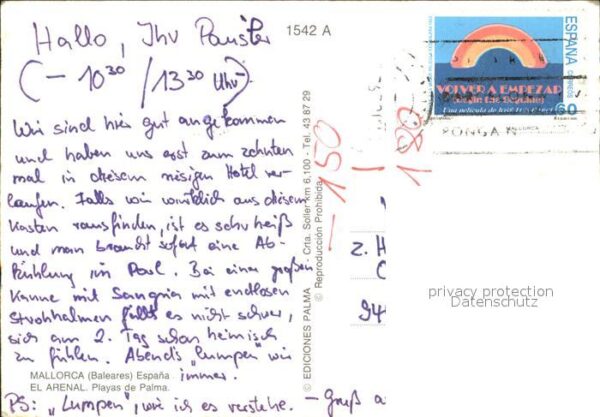 Hallo, Ihr Pauster
1542 A
(- 10³⁰ / 13³⁰ Uhr -
Wir sind hier gut angekommen
und haben uns erst zum zehnten
mal in diesem riesigen Hotel ver-
laufen. Falls wir wirklich aus diesem
Kasten rausfinden, ist es sehr heiß
und man braucht sofort eine Ab-
kühlung im Pool. Bei einer großen
Kanne mit Sangria mit endlosen
Strohhalmen fällt es nicht schwer,
sich am 2. Tag schon heimisch
zu fühlen. Abends "lumpen" wir
immer.
MALLORCA (Baleares) España
EL ARENAL. Playas de Palma.
PS: "Lumpen", wie ich es verstehe. - Gruß a
© EDICIONES PALMA - Crta. Soller km 6,100 - Tel. 43 87 29
© Reproducción Prohibida
- 150
180
ESPAÑA
CORREOS
60
VOLVER A EMPEZAR
(Begin the Beguine)
Una película de José Luis Garci
MALLORCA
PONGAN
z. H
94
privacy protection
Datenschutz